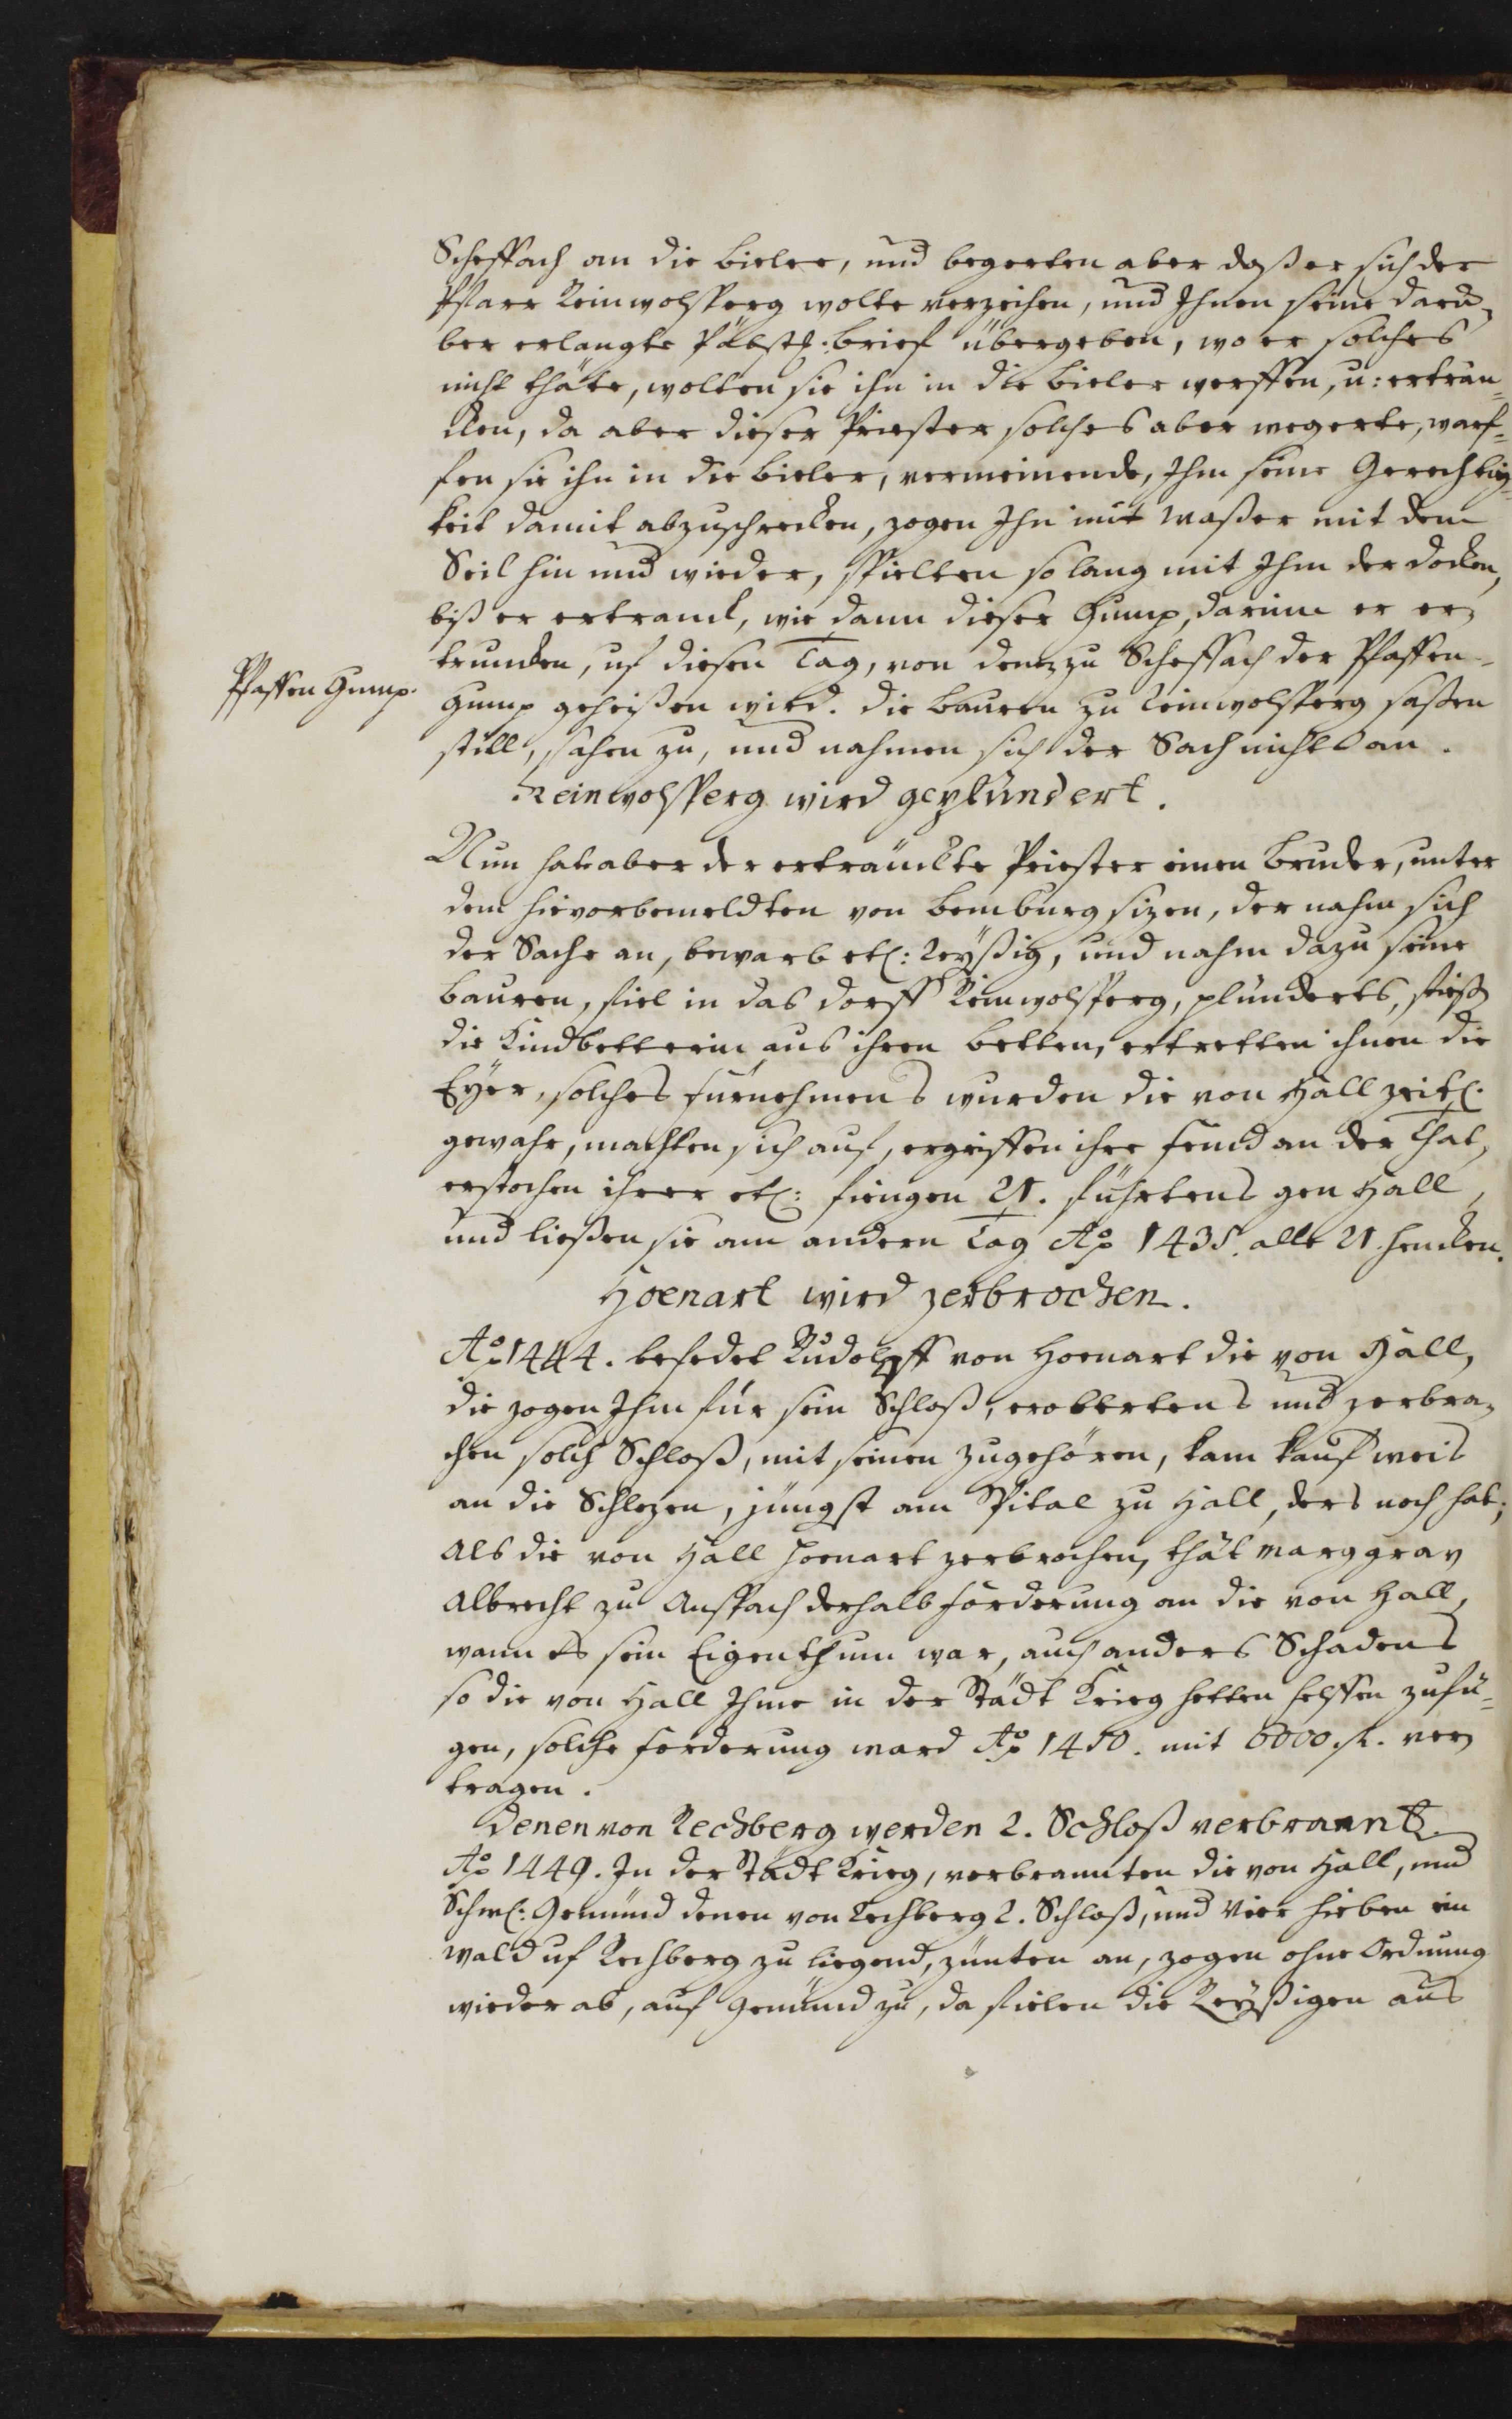 Scheffach an die bieler, und begerten aber daß er sich der
Pfarr Reinwolsperg wolte verzeihen, und Ihnen seine darü-
ber erlangte Päbstl: brief übergeben, wo er solches
nicht thäte, wolten sie ihn in die bieler werffen, u: erträn=
cken, da aber dieser Priester solches aber wegerte, warf=
fen sie ihn in die bieler, vermeinende, Ihm seine Gerechtig=
keit damit abzuschrecken, zogen Ihn im waßer mit dem
Seil hin und wieder, spielten so lang mit Ihm der docken,
biß er ertranck, wie dann dieser Gump, darinn er er-
truncken, uf diesen Tag, von denen zu Scheffach der Pfaffen-
Pfaffen Gump.
gump geheißen wird. die bauren zu Reinwolsperg saßen
still, sahen zu, und nahmen sich der Sach nichts an.
Reinwolsperg wird geplündert.
Nun hat aber der ertränckte Priester einen bruder, unter
dem hievorbemeldten von bemburg sizen, der nahm sich
der Sache an, bewarb etl: Reyßig, und nahm dazu seine
bauren, fiel in das dorff Reinwolsperg, plünderts, stieß
die Kindbetterin aus ihren betten, ertretten ihnen die
Eyer, solches fürnehmens wurden die von Hall zeitl:
gewahr, machten sich auf, ergriffen ihre feind an der That,
erstochen ihrer etl: fiengen 21. führtens gen Hall,
und ließen sie am andern Tag Ao 1435. alle 21. hencken.
Hoenart wird zerbrochen.
Ao 1444. befedet Rudolpff von Hoenart die von Hall,
die zogen Ihm für sein Schloß, erobertens und zerbra-
chen solch Schloß, mit seinen zugehören, kam kaufweis
an die Schlezen, jüngst am Spital zu Hall, ders noch hat;
Als die von Hall Hoenart zerbrochen, thät Marggrav
Albrecht zu Anspach derhalb forderung an die von Hall,
wann es sein Eigenthum war, auch anders Schadens
so die von Hall Ihme in der Städt Krieg hetten helffen zufü=
gen, solche forderung ward Ao 1450. mit 6000. fl. ver-
tragen.
Denen von Rechberg werden 2. Schloß verbrannt.
Ao 1449. In der Städt Krieg, verbrannten die von Hall, und
Schwl: Gemünd denen von Rechberg 2. Schloß, und vier hieben ein
wald uf Rechberg zu liegend, zünten an, zogen ohne Ordnung
wieder ab, auf Gemünd zu, da fielen die Reyßigen aus